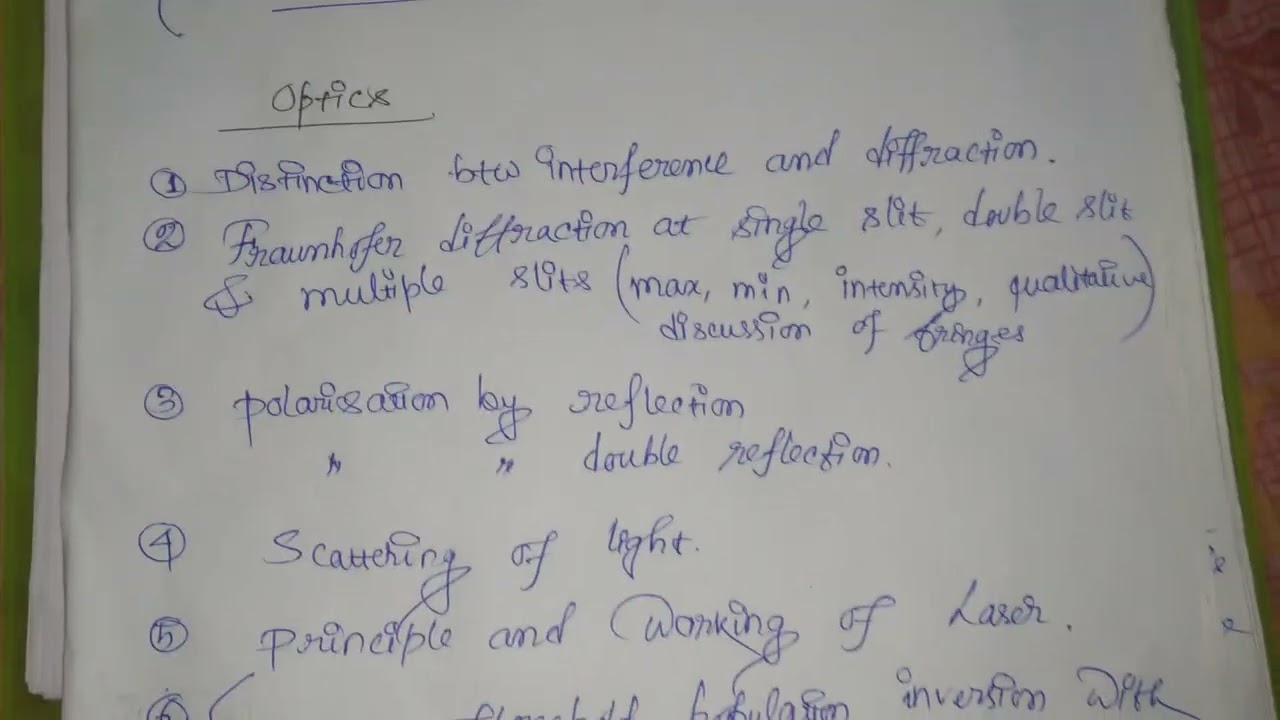 Optics
① Distinction btw interference and diffraction.
② Fraunhofer diffraction at single slit, double slit
& multiple slits (max, min, intensity, qualitative)
discussion of fringes
③ polarisation by reflection
" " double reflection.
④ Scattering of light.
⑤ Principle and Working of Laser.
⑥ population inversion with